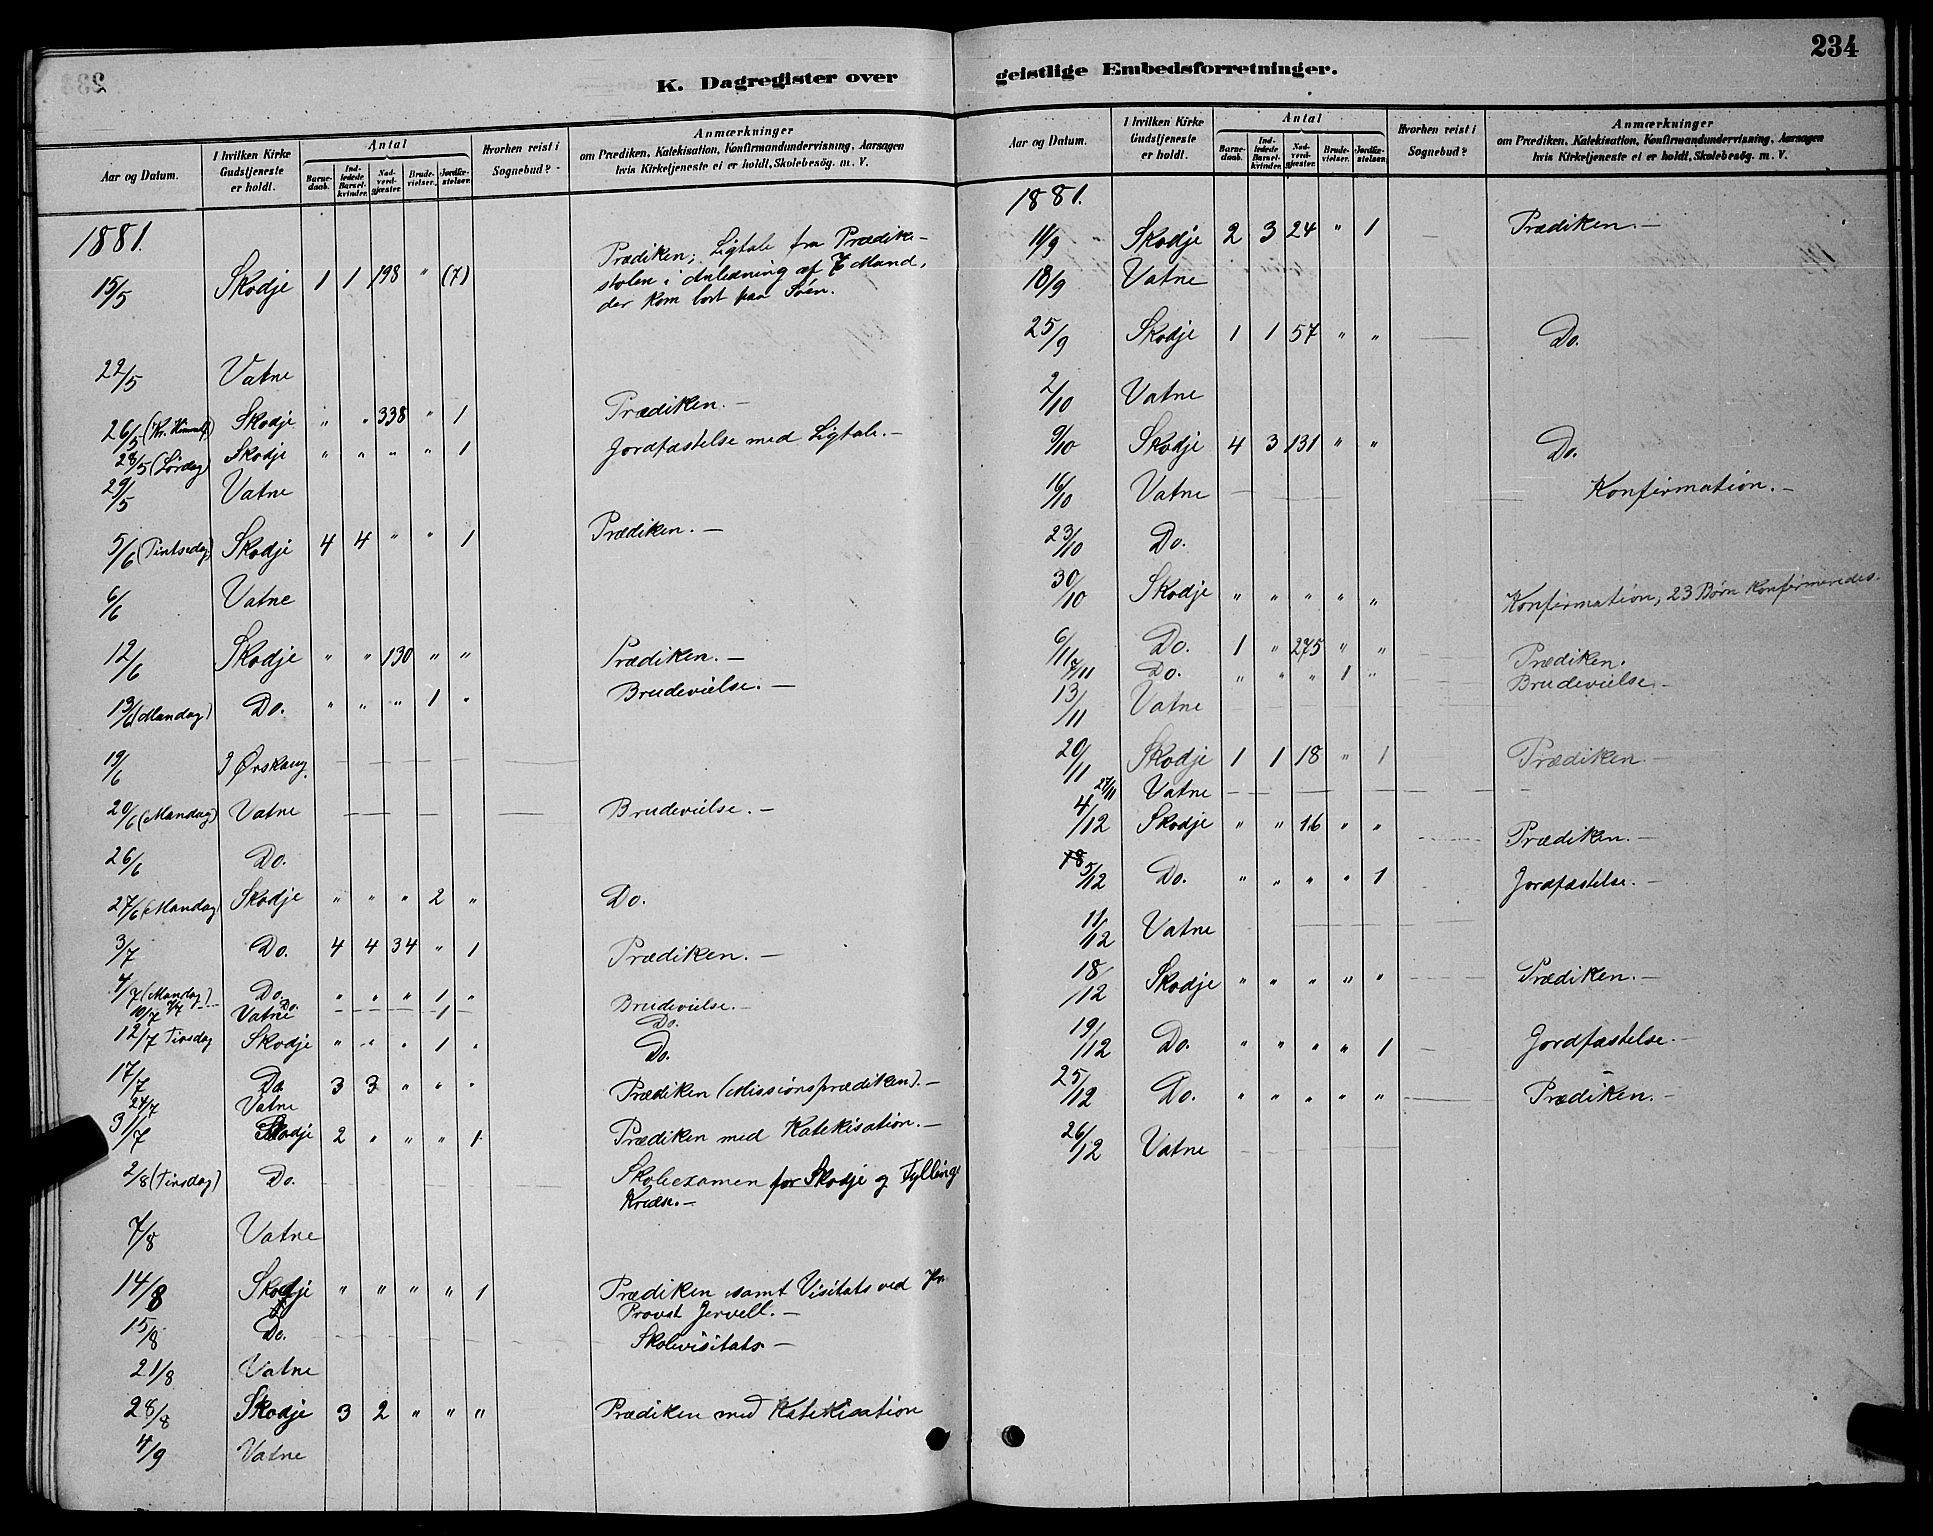 K. Dagregister over geistlige Embedsforretninger.
234
Aar og Datum. | I hvilken Kirke Gudstjeneste er holdt. | Antal | Hvorhen reist i Sognebud? | Anmærkninger om Prædiken, Katekisation, Konfirmandundervisning, Aarsagen hvis Kirketjeneste ei er holdt, Skolebesøg. m. V.
Barnedaab. | Indledede Barselkvinder. | Nadverdgjæster. | Brudevielser. | Jordfæstelser.
1881.
15/5 Skodje 1 1 198 " (7) Prædiken; Ligtale fra Prædike-
stolen i Anledning af 7 Mand,
der kom bort paa Söen.
22/5 Vatne
26/5 (Kr. Himmelf) Skodje " " 338 " 1 Prædiken. -
28/5 (Lördag) Skodje " " " " 1 Jordfæstelse med Ligtale. -
29/5 Vatne
5/6 (Pintsedag) Skodje 4 4 " " 1 Prædiken. -
6/6 Vatne
12/6 Skodje " " 130 " " Prædiken. -
13/6 (Mandag) Do. " " " 1 " Brudevielse. -
19/6 I Ørskoug.
20/6 (Mandag) Vatne Brudevielse. -
26/6 Do.
27/6 (Mandag) Skodje " " " 2 " Do.
3/7 Do. 4 4 34 " 1 Prædiken. -
4/7 (Mandag) Do. " " " 1 " Brudevielse. -
7/7 Do. 1 Do.
10/7 Vatne
12/7 Tirsdag Skodje " " " 1 " Do.
17/7 Do. 3 3 " " " Prædiken (Missionsprædiken). -
24/7 Vatne
31/7 Skodje 2 " " " 1 Prædiken med Katekisation. -
2/8 (Tirsdag) Do. Skoleexamen for Skodje og Fyllinge
Kredse. -
7/8 Vatne
14/8 Skodje " " " " 1 Prædiken samt Visitats ved Hr.
Provst Jervell. -
15/8 Do. Skolevisitats -
21/8 Vatne
28/8 Skodje 3 2 " " " Prædiken med Katekisation
4/9 Vatne
Aar og Datum. | I hvilken Kirke Gudstjeneste er holdt. | Antal | Hvorhen reist i Sognebud? | Anmærkninger om Prædiken, Katekisation, Konfirmandundervisning, Aarsagen hvis Kirketjeneste ei er holdt, Skolebesøg. m. V.
Barnedaab. | Indledede Barselkvinder. | Nadverdgjæster. | Brudevielser. | Jordfæstelser.
1881.
11/9 Skodje 2 3 24 " 1 Prædiken. -
18/9 Vatne
25/9 Skodje 1 1 57 " " Do.
2/10 Vatne
9/10 Skodje 4 3 131 " " Do.
16/10 Vatne Konfirmation. -
23/10 Do.
30/10 Skodje " " " " " Konfirmation, 23 Børn konfirmeredes.
6/11 Do. 1 " 275 " " Prædiken.
7/11 Do. " " " 1 " Brudevielse -
13/11 Vatne
20/11 Skodje 1 1 18 " 1 Prædiken -
27/11 Vatne
4/12 Skodje " " 16 " " Prædiken. -
5/12 Do. " " " " 1 Jordfæstelse. -
11/12 Vatne
18/12 Skodje " " " " " Prædiken. -
19/12 Do. " " " " 1 Jordfæstelse. -
25/12 Do. " " " " " Prædiken. -
26/12 Vatne